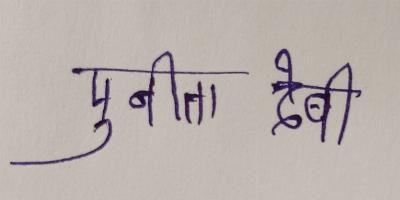 पुनीता देवी